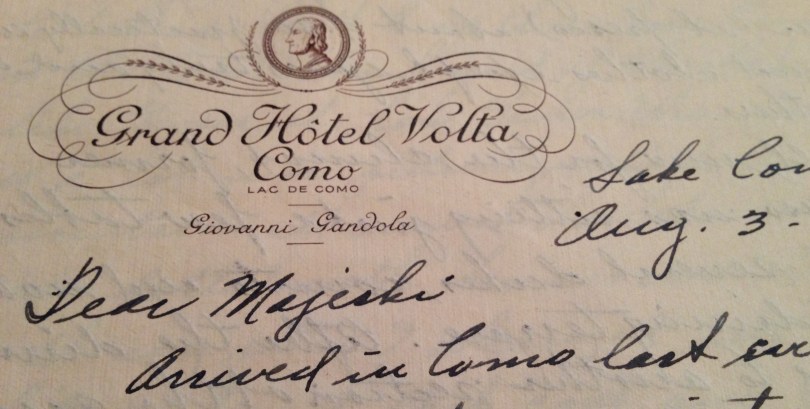 Grand Hôtel Volta
Como
LAC DE COMO
Giovanni Gandola
Lake Com
Aug. 3-
Dear Majeski
Arrived in Como last eve